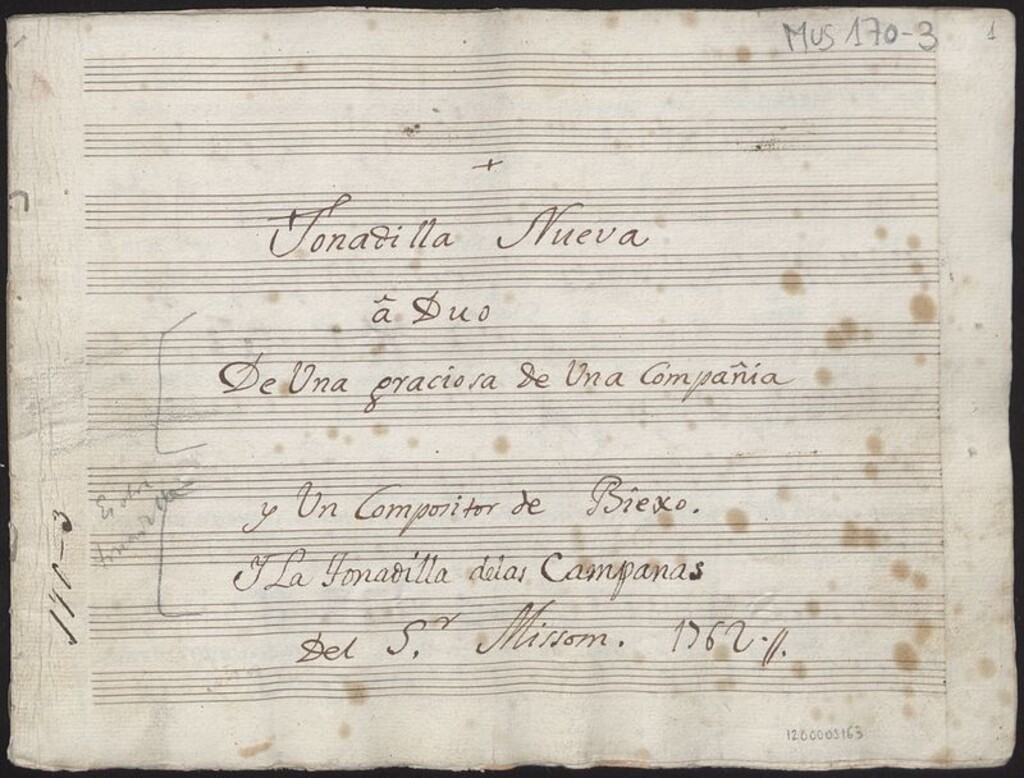 MUS 170-3
1
+
Tonadilla Nueva
â Duo
De Una graciosa de Una Compañia
y Un Compositor de Biexo.
Y La Tonadilla delas Campanas
Del S.r Missom. 1762.//.
1200005163